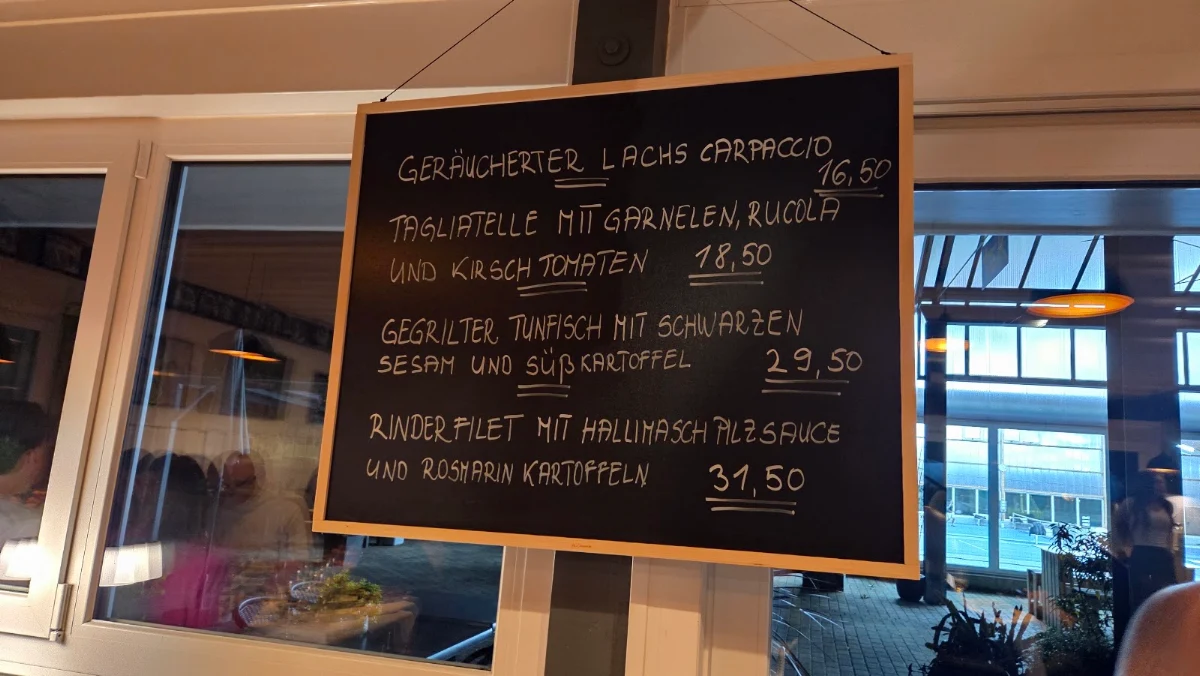 GERÄUCHERTER LACHS CARPACCIO
16,50
TAGLIATELLE MIT GARNELEN, RUCOLA
UND KIRSCH TOMATEN 18,50
GEGRILTER TUNFISCH MIT SCHWARZEN
SESAM UND SÜßKARTOFFEL 29,50
RINDERFILET MIT HALLIMASCH PILZSAUCE
UND ROSMARIN KARTOFFELN 31,50